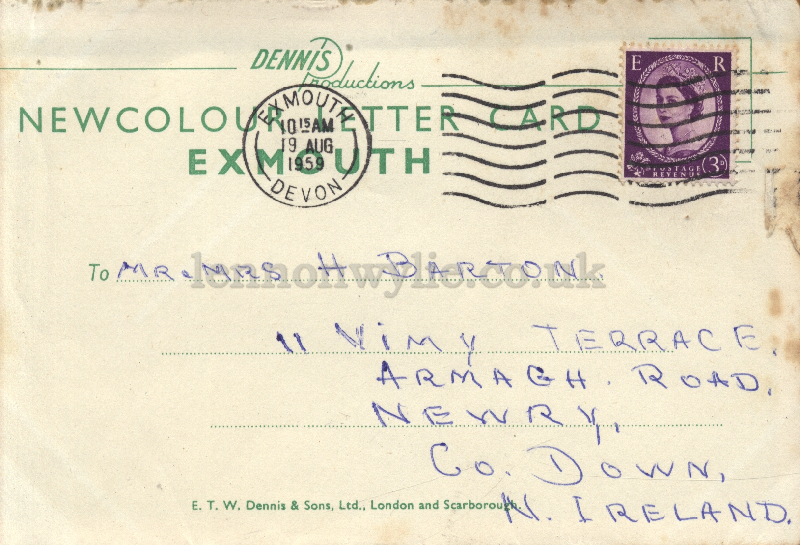 DENNIS
Productions
NEW COLOUR LETTER CARD
EXMOUTH
EXMOUTH
10 15 AM
19 AUG
1959
DEVON
E R
POSTAGE
REVENUE
3D
To Mr. & Mrs H BARTON.
lennonwylie.co.uk
11 VIMY TERRACE,
ARMAGH. ROAD,
NEWRY,
Co. DOWN,
N. IRELAND.
E. T. W. Dennis & Sons, Ltd., London and Scarborough.